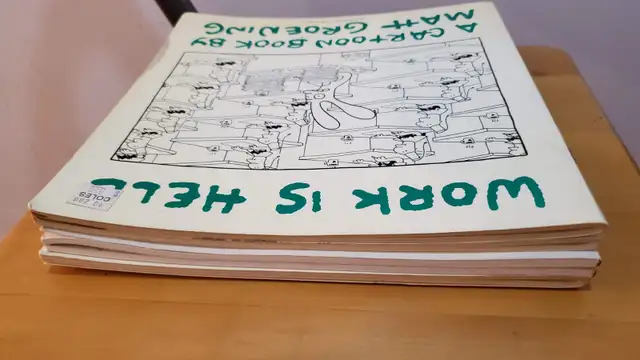 WORK IS HELL
A CARTOON BOOK BY
MATT GROENING
COLES